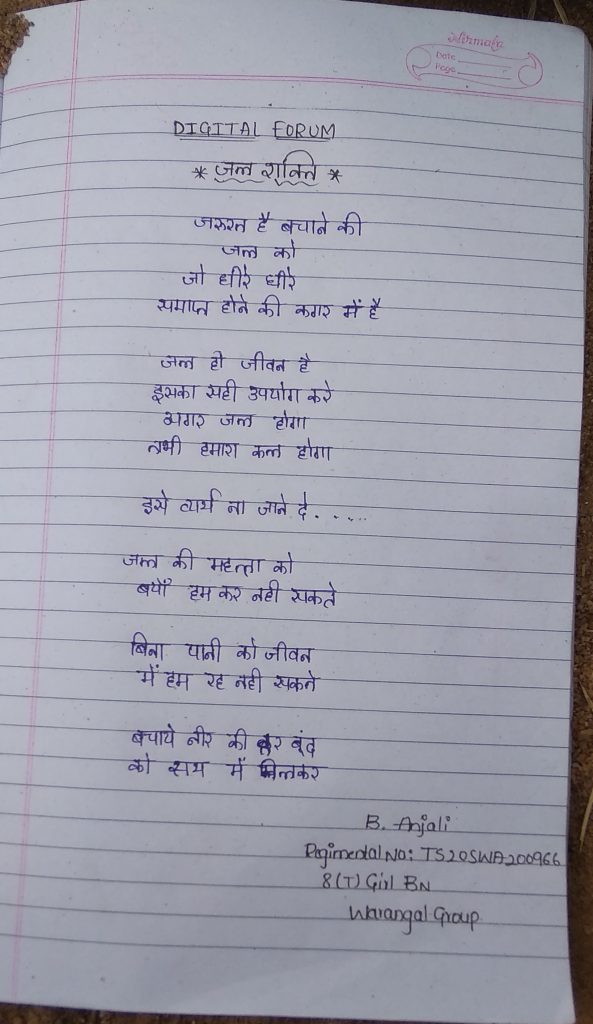 Nirmala
Date
Page
DIGITAL FORUM
* जल शक्ति *
जरुरत है बचाने की
जल को
जो धीरे धीरे
समाप्त होने की कगार में है
जल ही जीवन है
इसका सही उपयोग करे
अगर जल होगा
तभी हमारा कल होगा
इसे व्यर्थ ना जाने दे . . . . .
जल की महत्ता को
बयाँ हम कर नही सकते
बिना पानी को जीवन
में हम रह नही सकते
बचाये नीर की हर बूंद
को साथ में मिलकर
B. Anjali
Regimental No: TS20SWA200966
8(T) Girl BN
Warangal Group